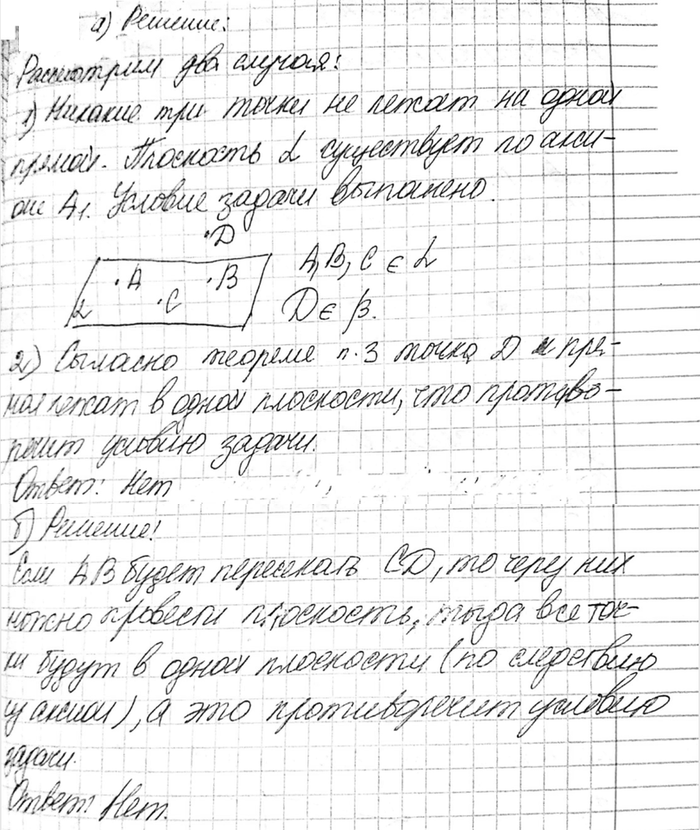 а) Решение:
Рассмотрим два случая:
1) Никакие три точки не лежат на одной
прямой. Плоскость α существует по акси-
оме A₁. Условие задачи выполнено.
D
A B A, B, C ∈ α
α C D ∈ β.
2) Согласно теореме п. 3 точка D и пря-
мая лежат в одной плоскости, что противо-
речит условию задачи.
Ответ: Нет
б) Решение:
Если AB будет пересекать CD, то через них
можно провести плоскость, тогда все точ-
ки будут в одной плоскости (по следствию
из аксиом), а это противоречит условию
задачи.
Ответ: Нет.